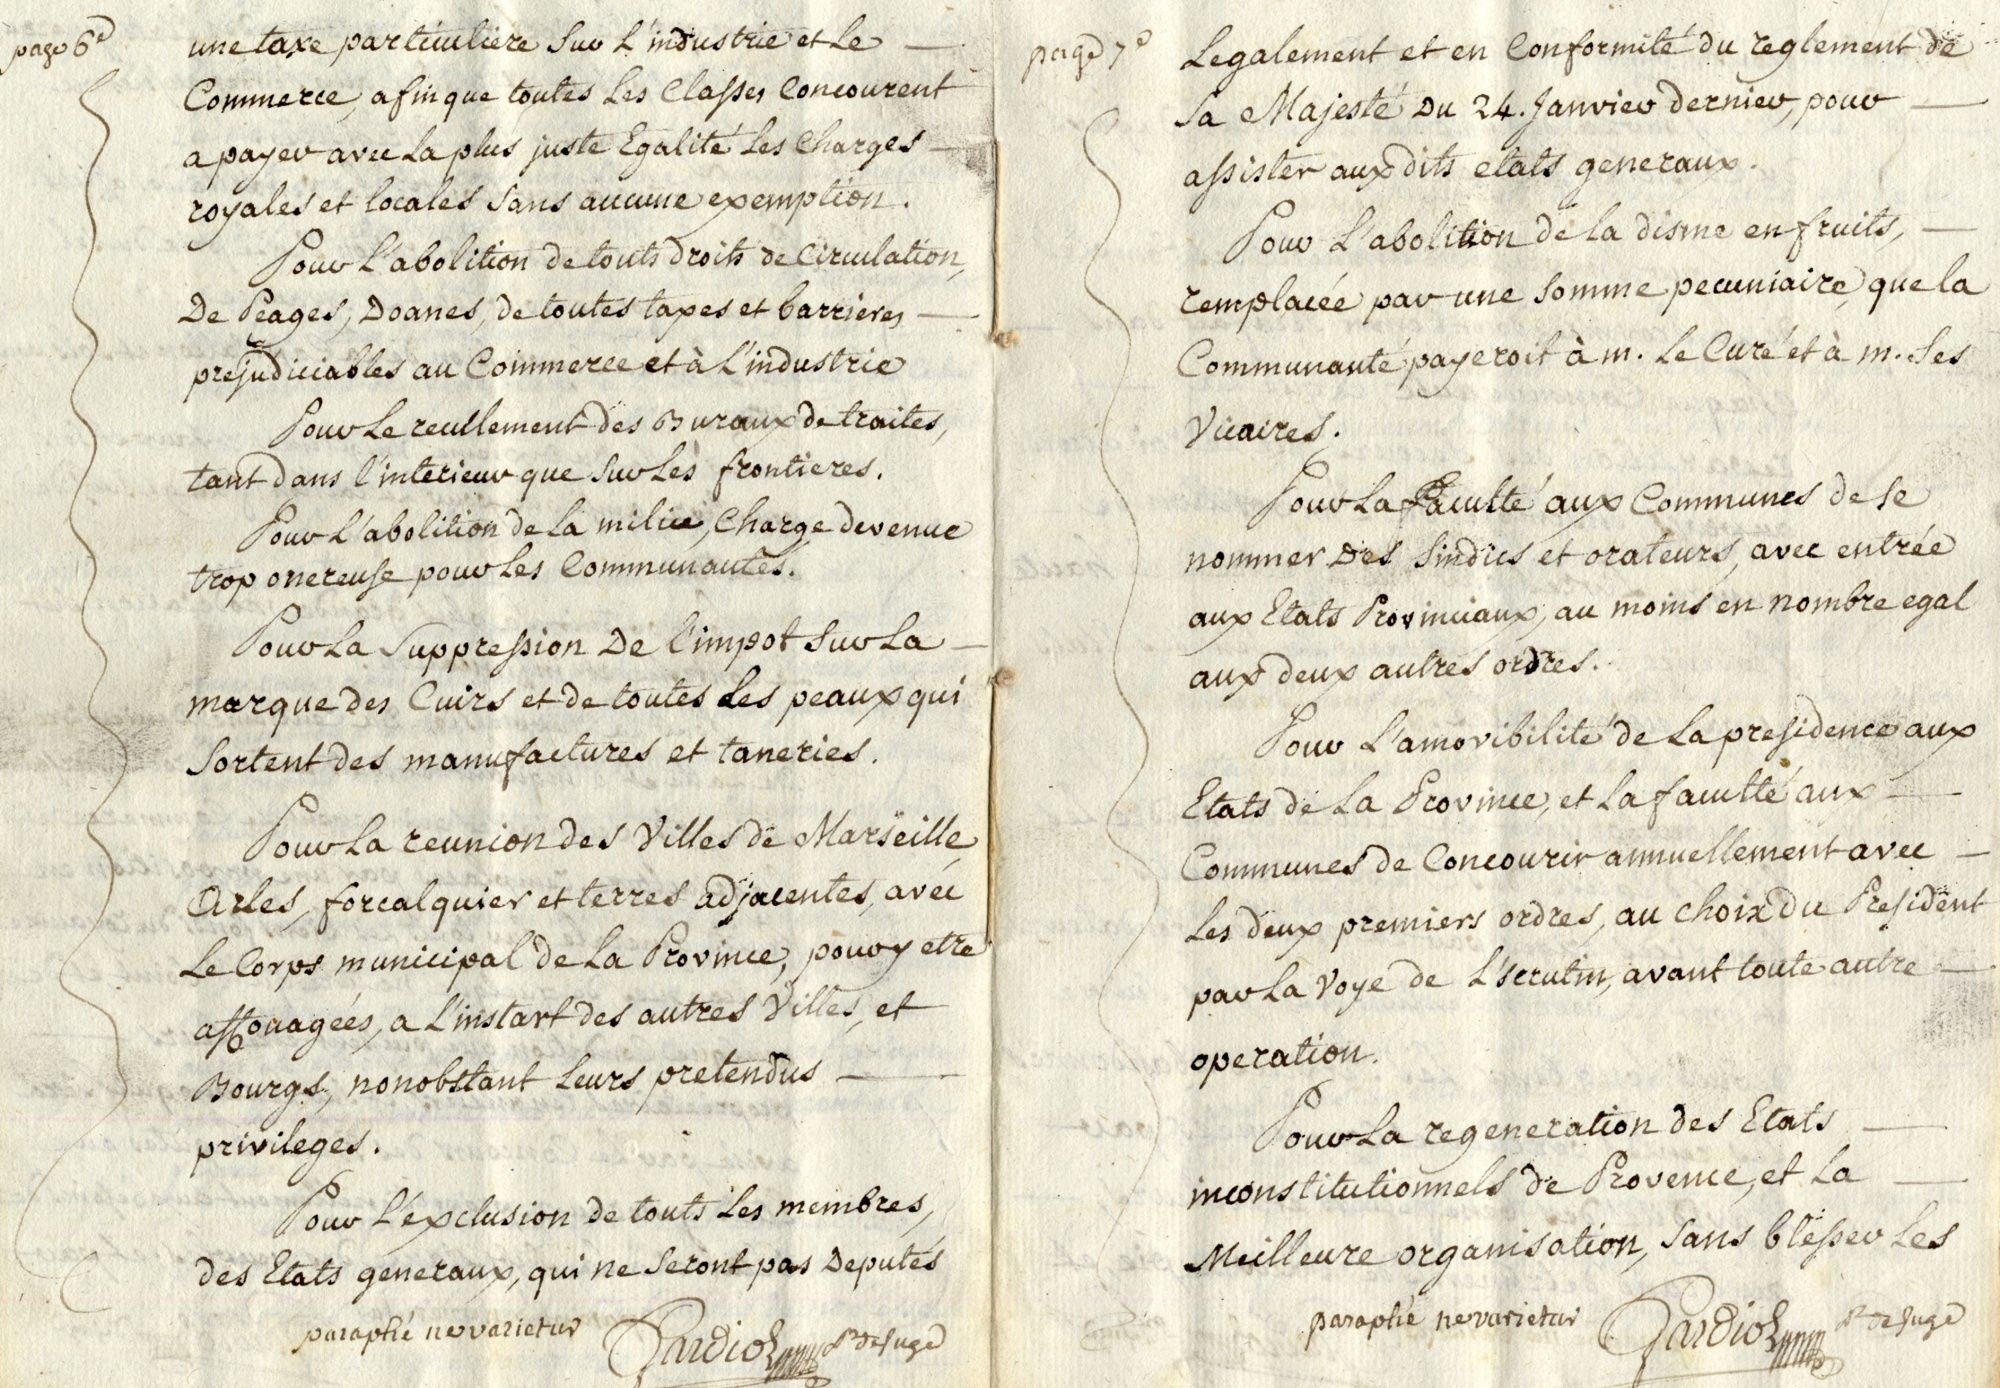 page 6e
une taxe particuliere Sur L'industrie et Le
Commerce, afin que toutes Les Classes Concourent
a payer avec La plus juste Egalité Les Charges
royales et locales Sans aucune exemption.
Pour L'abolition de touts droits de Circulation,
De Peages, Doanes, de toutes taxes et barrieres
prejudiciables au Commerce et à L'industrie
Pour Le recullement des Buraux de traites,
tant dans l'interieur que Sur Les frontieres.
Pour L'abolition de La milice, Charge devenue
trop onereuse pour Les Communautés.
Pour La Suppression De l'impot Sur La
marque des Cuirs et de toutes Les peaux qui
Sortent des manufactures et taneries.
Pour La reunion des Villes de Marseille,
Arles, forcalquier et terres adjacentes, avec
Le Corps municipal de La Province, pour y etre
affouagées, a L'instart des autres Villes, et
Bourgs, nonobstant Leurs pretendus
privileges.
Pour L'exclusion de touts Les membres,
des Etats generaux, qui ne Seront pas Deputés
paraphé ne varietur Gardiol Lt de juge
page 7e
Legalement et en Conformité du reglement de
Sa Majesté Du 24. Janvier dernier, pour
assister aux dits etats generaux.
Pour L'abolition de La disme en fruits,
remplacée par une Somme pecuniaire, que la
Communauté payeroit à m. Le Curé et à m. Ses
Vicaires.
Pour La faculté aux Communes de Se
nommer Des Sindics et orateurs, avec entrée
aux Etats Provinciaux, au moins en nombre egal
aux deux autres ordres.
Pour L'amovibilité de La presidence aux
Etats de La Province, et La faculté aux
Communes de Concourir annuellement avec
Les deux premiers ordres, au choix du President
par La Voye de L'scrutin, avant toute autre
operation.
Pour La regeneration des Etats
inconstitutionnels de Provence, et La
Meilleure organisation, Sans blesser Les
paraphé ne varietur Gardiol Lt de juge